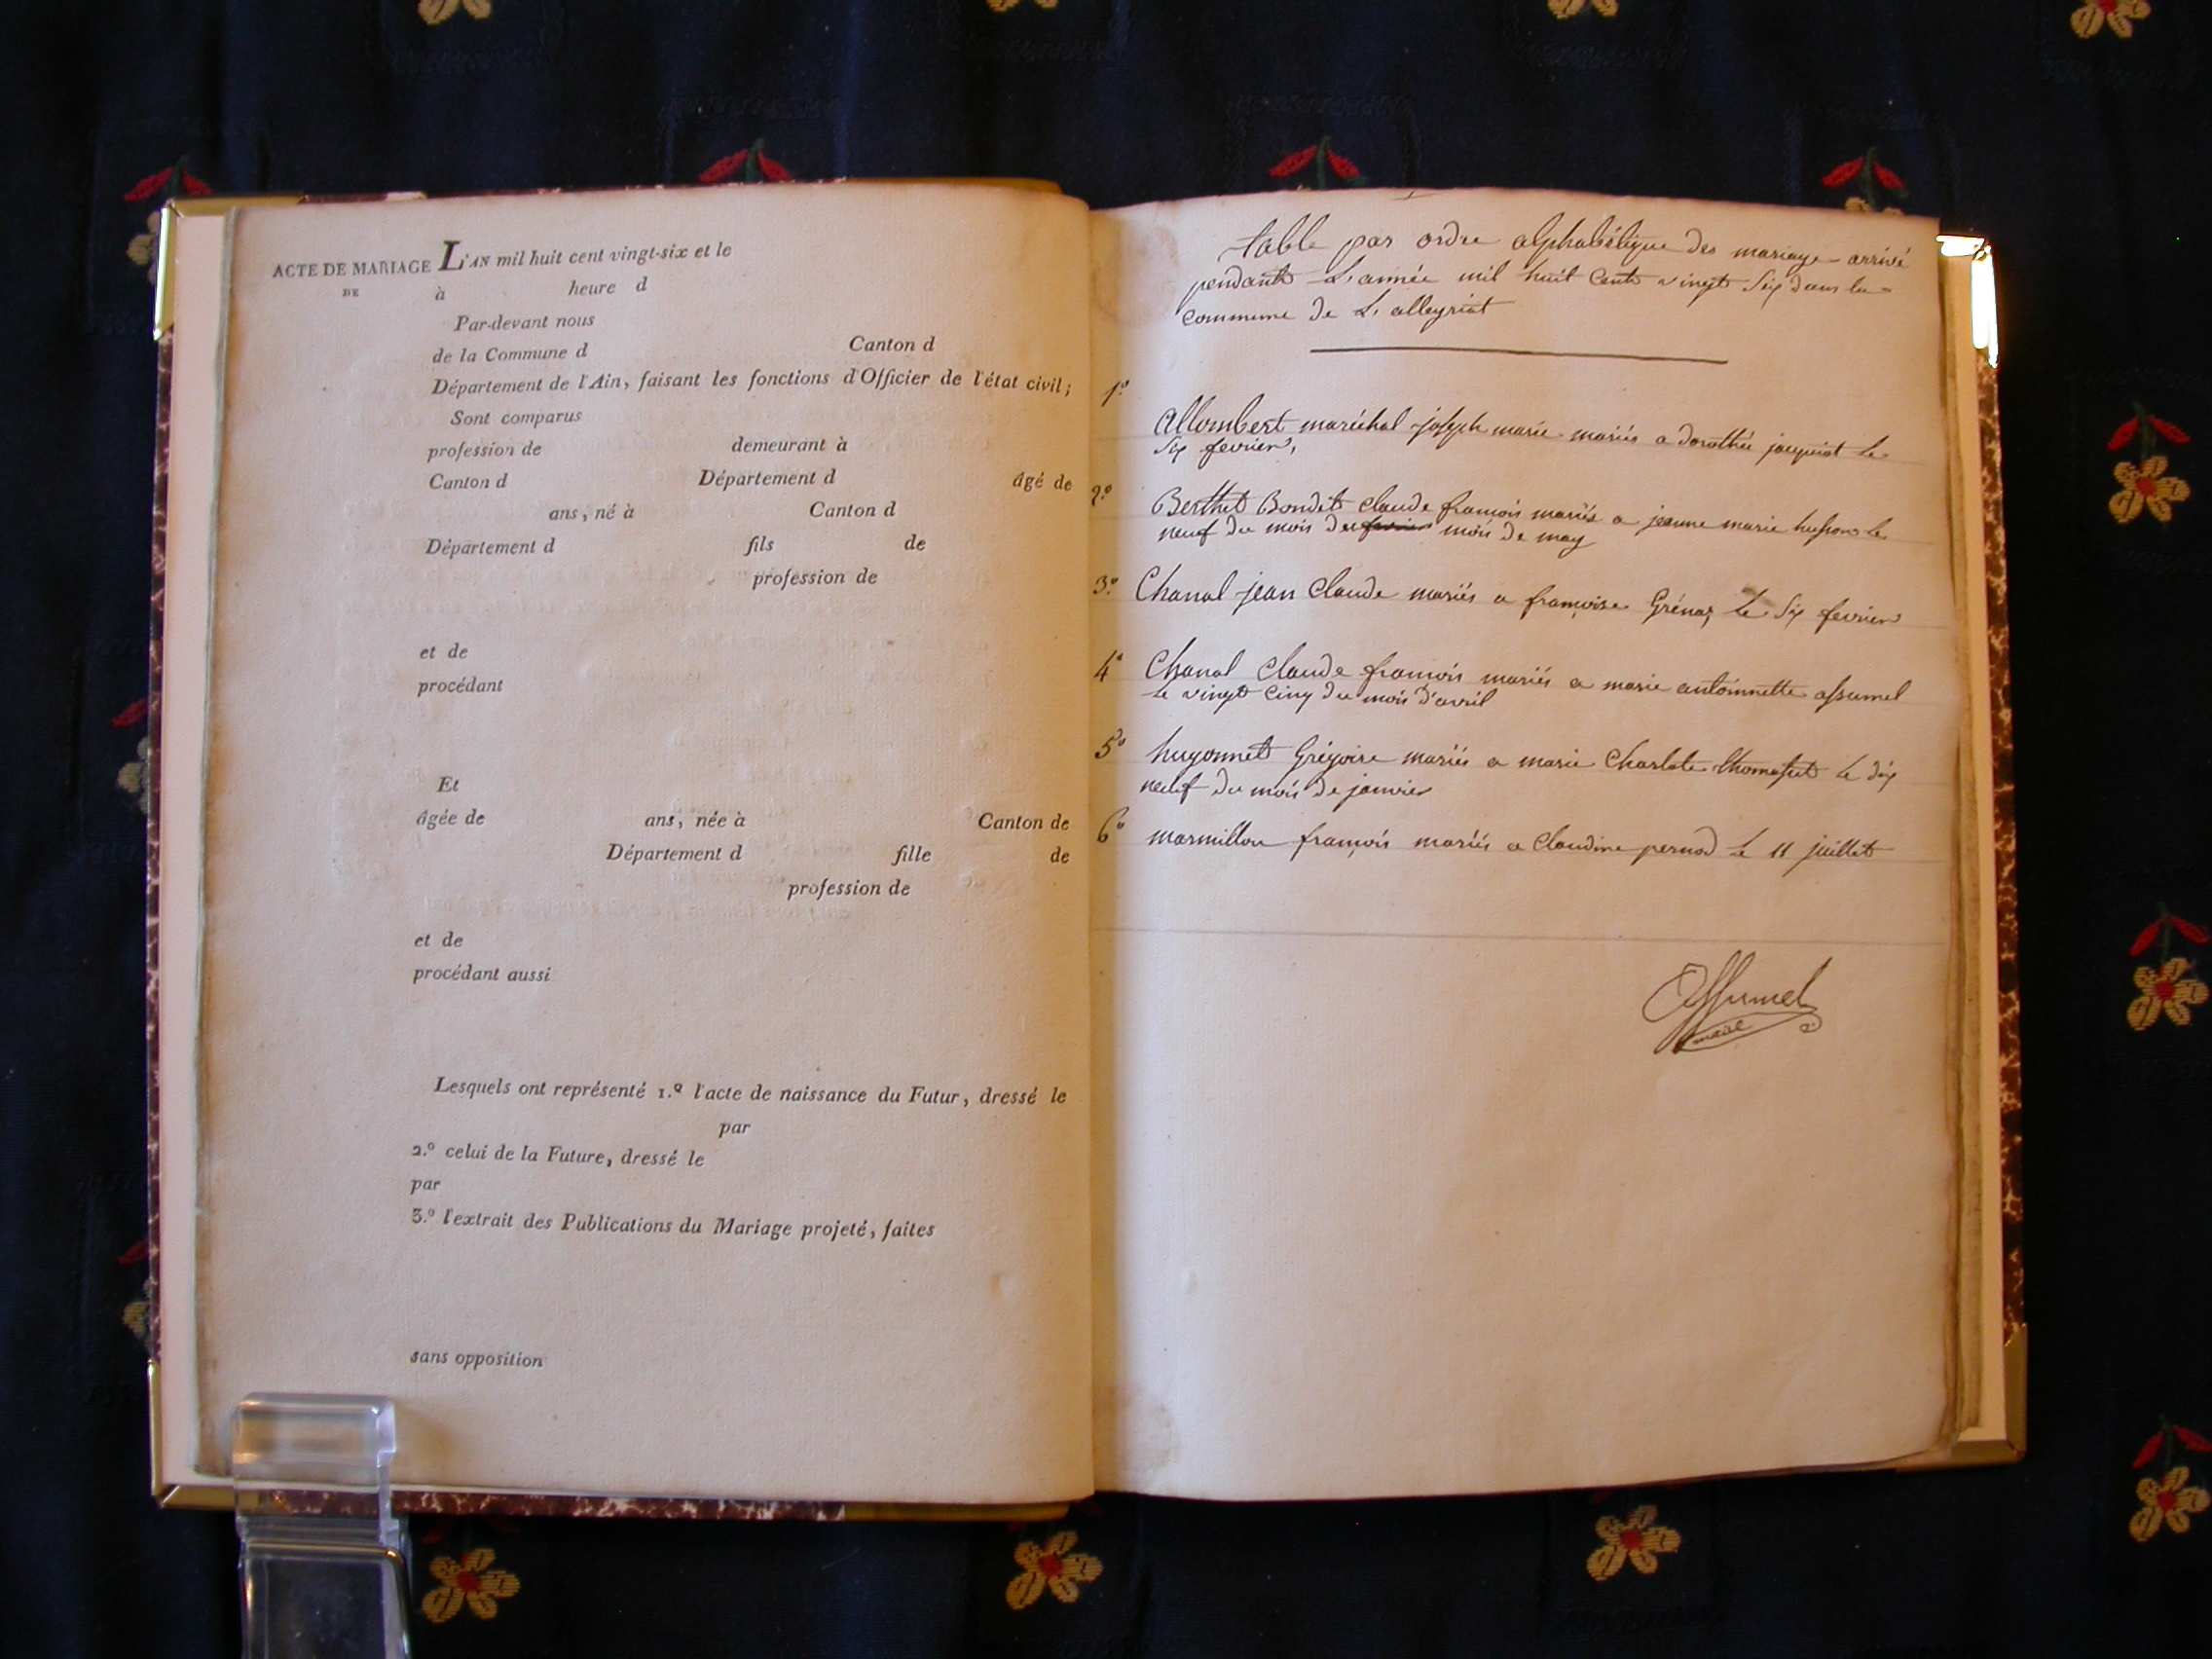 ACTE DE MARIAGE L'AN mil huit cent vingt-six et le
DE à heure d
Par-devant nous
de la Commune d Canton d
Département de l'Ain, faisant les fonctions d'Officier de l'état civil;
Sont comparus
profession de demeurant à
Canton d Département d âgé de
ans, né à Canton d
Département d fils de
profession de
et de
procédant
Et
âgée de ans, née à Canton de
Département d fille de
profession de
et de
procédant aussi
Lesquels ont représenté 1.º l'acte de naissance du Futur, dressé le
par
2.º celui de la Future, dressé le
par
3.º l'extrait des Publications du Mariage projeté, faites
sans opposition
table par ordre alphabétique des mariage arrivé
pendant L'année mil huit Cent vingt Six dans la
commune de L'alleyriat
1º
Allombert maréchal joseph marie mariés a dorothée jacquiot le
Six fevrier,
2º Berthet Bondet Claude françois mariés a jeanne marie husson le
neuf du mois du mois de may
3º Chanal jean Claude mariés a françoise Grénaz le Six fevrier
4º Chanal Claude françois mariés a marie antoinnette assumel
le vingt Cinq du mois d'avril
5º hugonnet Grégoire mariés a marie Charlote thomasset le dix
neuf du mois de janvier
6º marmillon françois mariés a Claudine pernod le 11 juillet
Assumel
maire